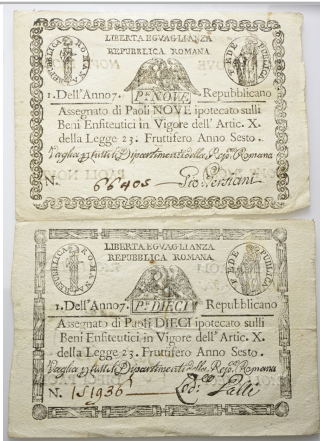 LIBERTA EGUAGLIANZA
REPUBBLICA ROMANA
REPUBBLICA ROMANA
FEDE PUBBLICA
1. Dell'Anno 7. Pⁱ NOVE Repubblicano
Assegnato di Paoli NOVE ipotecato sulli
Beni Enfiteutici in Vigore dell'Artic. X.
della Legge 23. Fruttifero Anno Sesto.
Vaglia p tutti i Dipartimenti della Rep. Romana
N. 66405
LIBERTA EGUAGLIANZA
REPUBBLICA ROMANA
REPUBBLICA ROMANA
FEDE PUBBLICA
1. Dell'Anno 7. Pⁱ DIECI Repubblicano
Assegnato di Paoli DIECI ipotecato sulli
Beni Enfiteutici in Vigore dell'Artic. X.
della Legge 23. Fruttifero Anno Sesto.
Vaglia p tutti i Dipartimenti della Rep. Romana
N. 151936